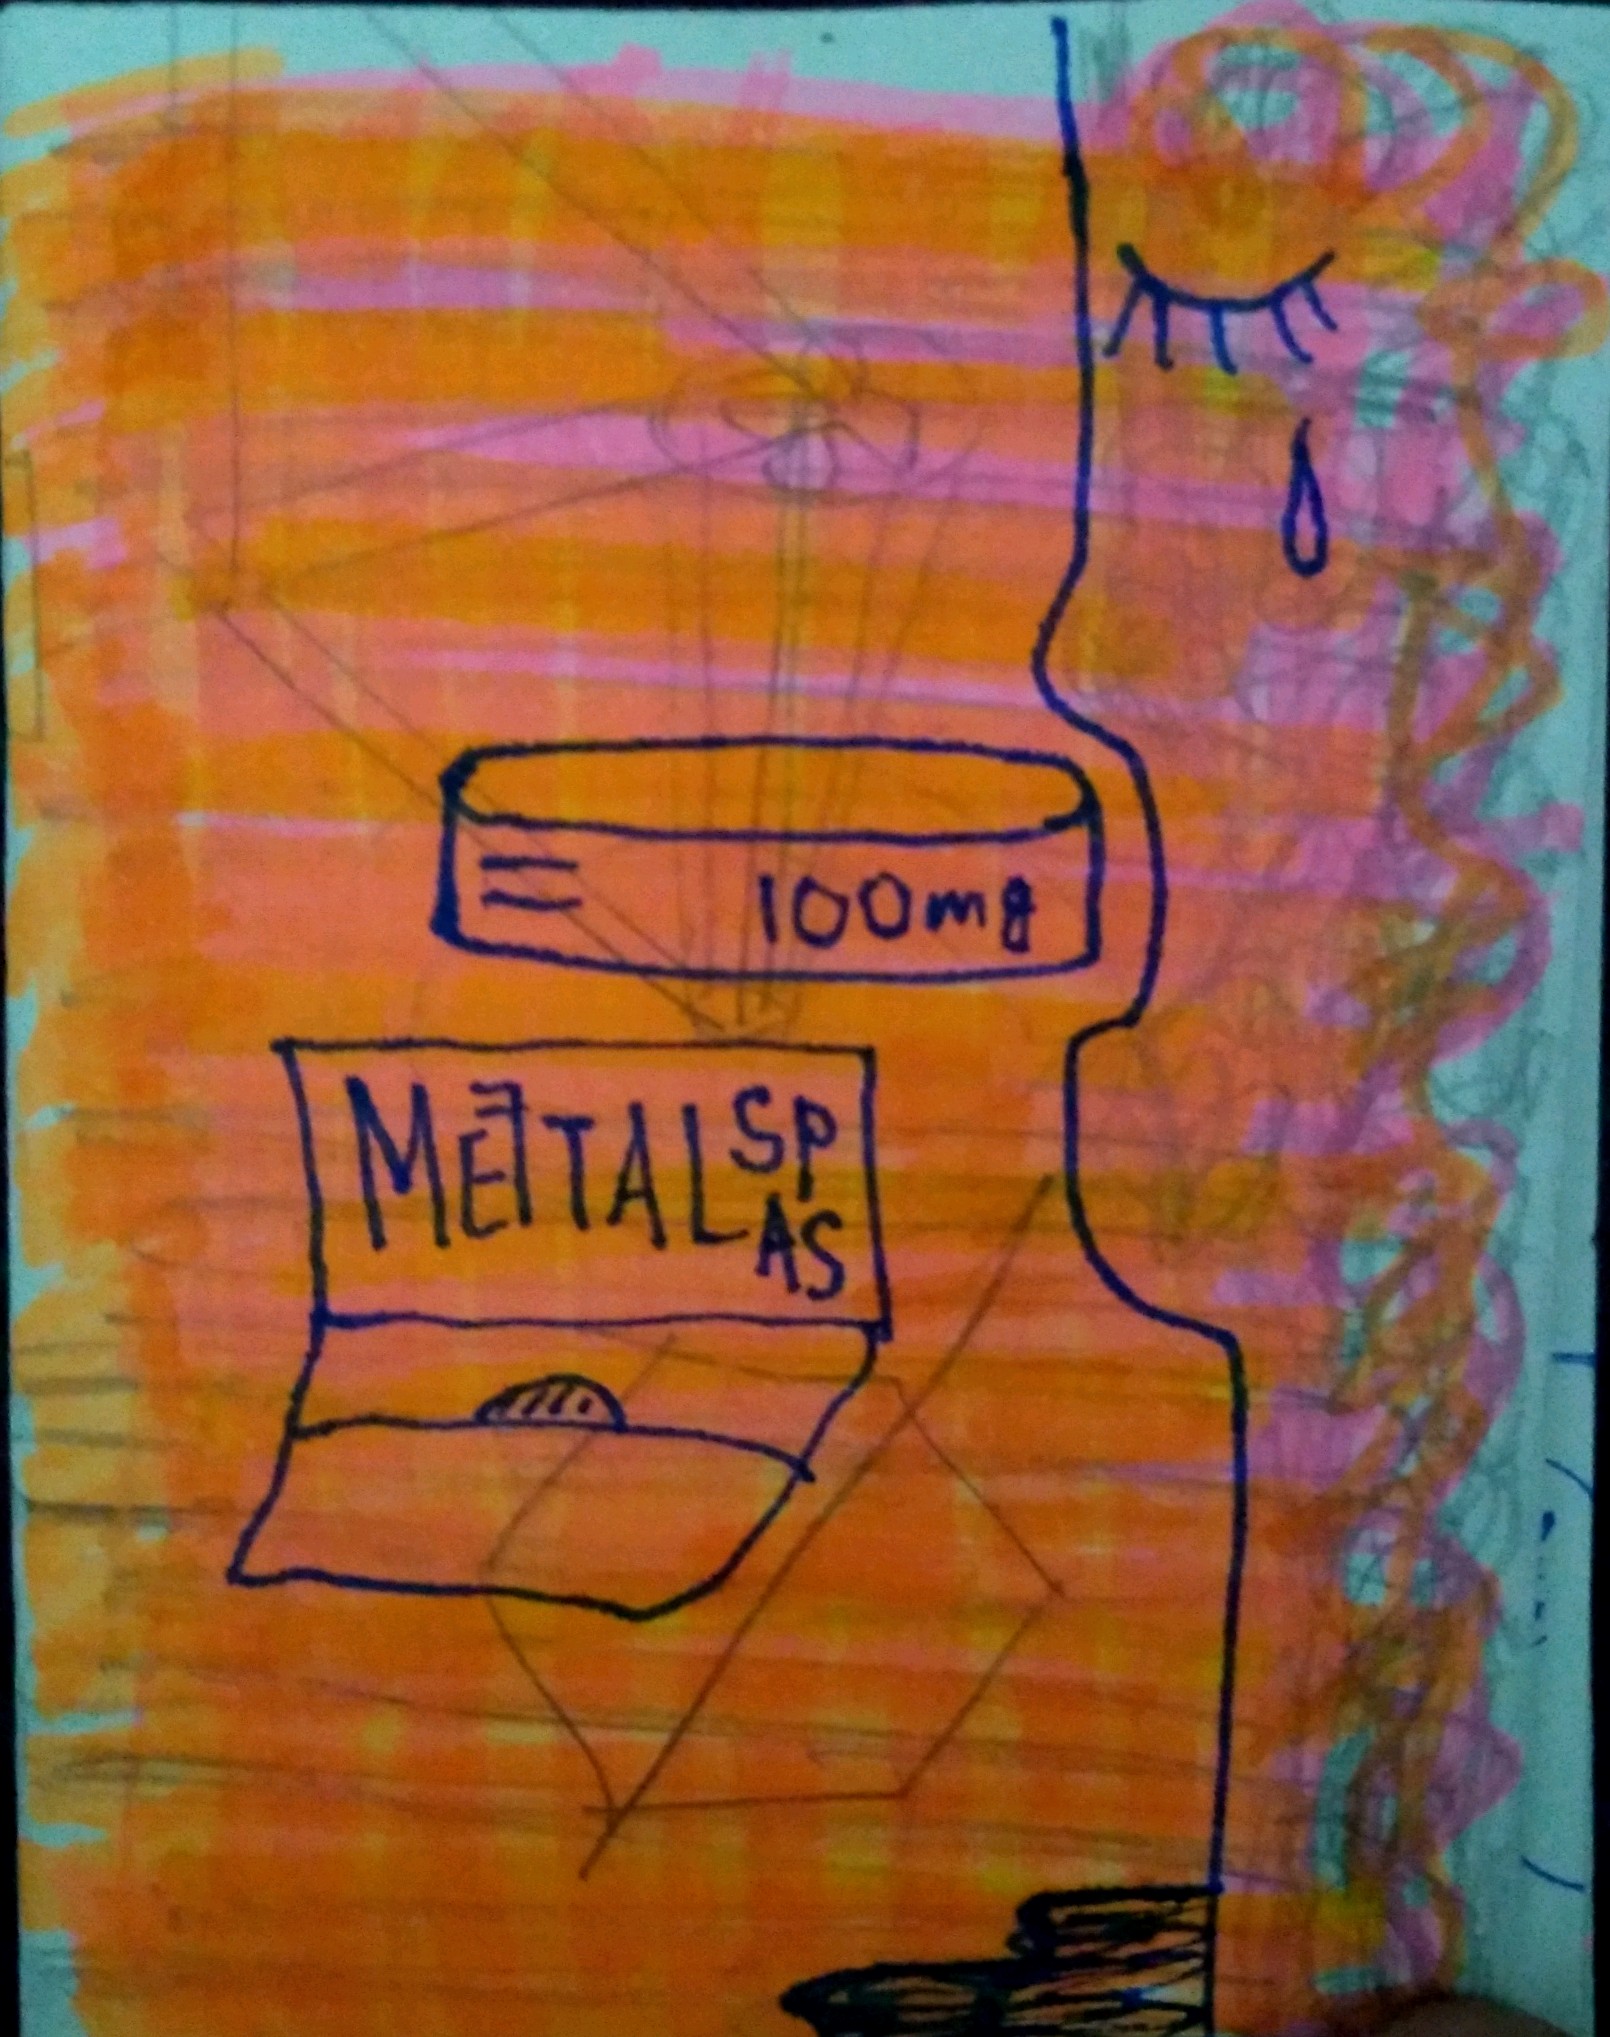 100mg
MEFTAL SP
AS